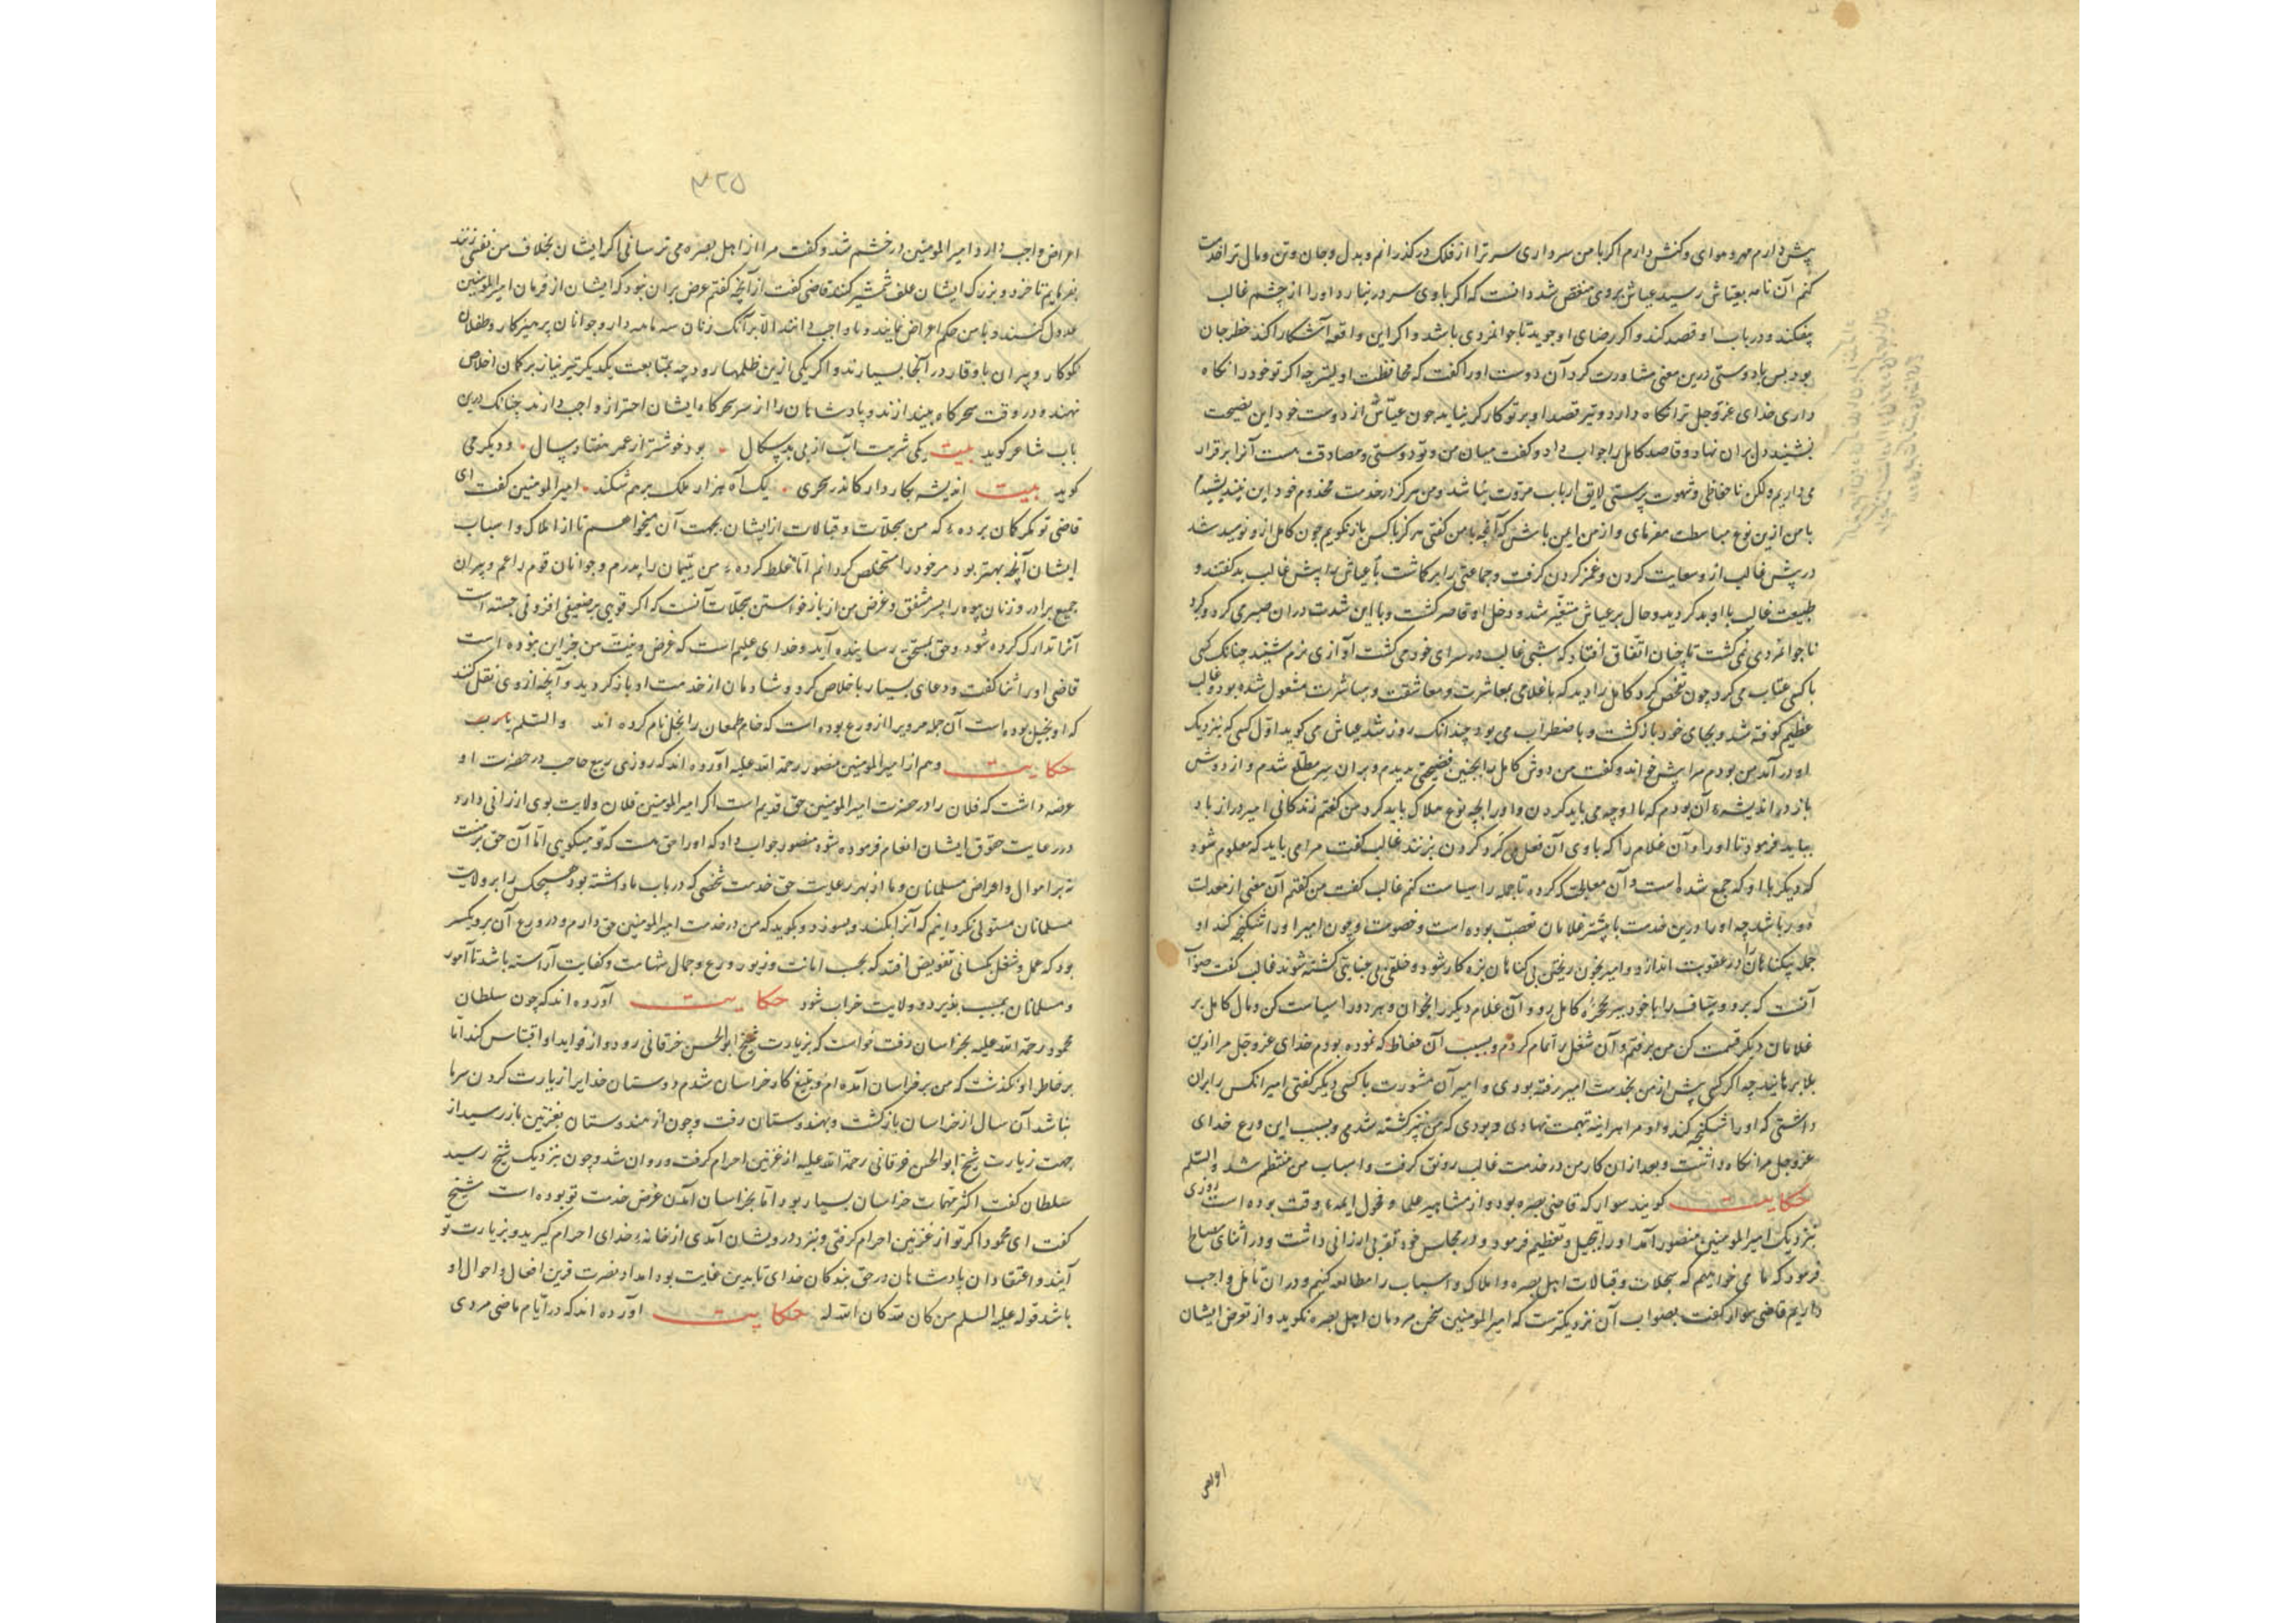 پیش دارم مهر و موای و کنش دارم اگر با من سر داری سر ترا از فلک در گذرانم و بدل و جان و تن و مال ترا خدمت
کنم آن نامه بعیاش رسید عیاش بروی منغص شد دانست که اگر با وی سر در نیارد او را از چشم غالب
بیفکند و در باب او قصد کند و اگر رضای او جوید ناجوانمردی باشد و اگر این واقعه آشکارا کند خطر جان
بود پس با دوستی درین معنی مشاورت کرد آن دوست او را گفت که محافظت اولیتر چه اگر تو خود را نگاه
داری خدای عزوجل ترا نگاه دارد و تیر قصد او بر تو کارگر نیاید چون عیاش از دوست خود این نصیحت
بشنید دل بر آن نهاد و قاصد کامل را جواب داد و گفت میان من و تو دوستی و مصادقت هست آنرا برقرار
می داریم ولکن ناحفاظی و شهوت پرستی لایق ارباب مروت نباشد و من هرگز در خدمت مخدوم خود این نیندیشیده ام
با من ازین نوع مباسطت مفرمای و از من ایمن باش که آنچه با من گفتی هرگز با کس باز نگویم چون کامل از او نومید شد
در پیش غالب از او سعایت کردن و غمز کردن گرفت و جماعتی را برگماشت تا عیاش را پیش غالب بد گفتند و
طبیعت غالب با او بد گردید و حال بر عیاش متغیر شد و دخل او قاصر گشت و با این شدت در آن صبری کرد و گرد
ناجوانمردی نمی گشت تا چنان اتفاق افتاد که شبی غالب در سرای خود می گشت آوازی نرم شنید چنانک کسی
با کسی عتاب می کرد چون تفحص کرد کامل را دید که با غلامی بمعاشرت و معاشقت و مباشرت مشغول شده بود غالب
عظیم کوفته شد و بجای خود باز گشت و با ضطراب می بود چندانک روز شد عیاش می گوید اول کسی که نزدیک
او در آمد من بودم مرا پیش خواند و گفت من دوش کامل را بچنین فضیحتی بدیدم و بر آن سر مطلع شدم و از دوش
باز در اندیشه آن بودم که با او چه می باید کردن و او را بچه نوع هلاک باید کرد من گفتم زندگانی امیر دراز باد
بباید فرمود تا او را و آن غلام را که با وی آن فعل می کرد گردن بزنند غالب گفت مرا می باید که معلوم شود
که دیگر با او که جمع شده است و آن معاملت که کرده تا جمله را سیاست کنم غالب گفت من گفتم آن معنی از معدلت
دور باشد چه او را درین خدمت با بیشتر غلامان تعصب بوده است و خصومت و چون امیر او را شکنجه کند او
جمله بیگناهان را در عقوبت اندازد و امیر بخون ریختن بی گناهان بزه کار شود و خلقی بی جنایتی کشته شوند غالب گفت صواب
آنست که برو و سیاف را با خود ببر بحجره کامل رو و آن غلام دیگر را بخوان و هر دو را سیاست کن و مال کامل بر
غلامان دیگر قسمت کن من برفتم و آن شغل را تمام کردم و بسبب آن حفاظ که نموده بودم خدای عزوجل مرا ازین
بلا برهانید چه اگر کسی پیش از من بخدمت امیر رفته بودی و امیر آن مشورت با کسی دیگر گفتی امیر آنکس را بر آن
داشتی که او را شکنجه کند و او مرا هر اینه تهمت نهادی و بودی که من نیز کشته شدمی و بسبب این ورع خدای
عزوجل مرا نگاه داشت و بعد از آن کار من در خدمت غالب رونق گرفت و اسباب من منتظم شد والسلم
حکایت گویند سوار که قاضی بصره بود و از مشاهیر علما و فحول ایمه وقت بوده است روزی
بنزدیک امیر المومنین منصور آمد او را تبجیل و تعظیم فرمود و در مجالس خود تقربی ارزانی داشت و در اثنای مصالح
فرمود که ما می خواهیم که سجلات و قبالات اهل بصره و املاک و اسباب را مطالعه کنیم و در آن تامل واجب
داریم قاضی سوار گفت بصواب آن نزدیکترست که امیر المومنین سخن مردمان اهل بصره نگوید و از تعرض ایشان
۳۲۵
اعراض واجب دارد امیر المومنین در خشم شد و گفت مرا از اهل بصره می ترسانی اگر ایشان بخلاف من نفسی زنند
بفرمایم تا خرد و بزرگ ایشان علف شمشیر کنند قاضی گفت از آنچه گفتم غرض بر آن نبود که ایشان از فرمان امیر المومنین
عدول کنند و با من حکم اعراض نمایند و ما واجب دانند الا بر آنک زنان سه نامه دار و جوانان پرهیزکار و طفلان
نکوکار و پیران با وقار در آنجا بسیارند و اگر یکی ازین ظلمها رود چه بمتابعت یکدیگر تیر نیاز بر کمان اخلاص
نهند و در وقت سحرگاه بیندازند و پادشاهان را از سر سحرگاه ایشان احتراز واجب دارند چنانک درین
باب شاعر گوید بیت یکی شربت آب از پی بد سگال بود خوشتر از عمر هفتاد سال و دیگر می
گوید بیت اندیشه بکار دار کاندر سحری یک آه هزار ملک برهم شکند امیر المومنین گفت ای
قاضی تو مگر گمان برده که من سجلات و قبالات از ایشان بجهت آن میخواهم تا از املاک و اسباب
ایشان آنچه بهتر بود مر خود را مستخلص گردانم اما غلط کرده من یتیمان را پدرم و جوانان قوم را عم و پیران
جمیع برادر و زنان بیوه را پسر مشفق و غرض من از باز خواستن سجلات آنست که اگر قویی بر ضعیفی افزونی جسته است
آنرا تدارک کرده شود و حق بمستحق رسانیده آید و خدای علیم است که غرض و نیت من جز این نبوده است
قاضی او را ثنا گفت و دعای بسیار با خلاص کرد و شادمان از خدمت او باز گردید و آنچه از وی نقل کنند
که او بخیل بوده است آن جمله مرویرا از ورع بوده است که خام طمعان را بخل نام کرده اند والسلم
حکایت و هم از امیر المومنین منصور رحمة الله علیه آورده اند که روزی ربیع حاجب در حضرت او
عرضه داشت که فلان را در حضرت امیر المومنین حق قدیم است اگر امیر المومنین فلان ولایت بوی ارزانی دارد
در رعایت حقوق ایشان انعام فرموده شود منصور جواب داد که او را حق هست که تو میگویی اما آن حق بر منست
نه بر اموال و اعراض مسلمانان و ما از بهر رعایت حق خدمت شخصی که در باب ما داشته بود هیچکس را بر ولایت
مسلمانان مستولی نگردانیم که آنرا بکند و بسوزد و بگوید که من در خدمت امیر المومنین حق دارم و در ورع آن برو یکسر
بود که عمل و شغل بکسانی تفویض افتد که بحسب امانت و زیور ورع و جمال شهامت و کفایت آراسته باشد تا امور
و مسلمانان بسبب بغیر دد و ولایت خراب شود حکایت آورده اند که چون سلطان
محمود رحمة الله علیه بخراسان رفت خواست که بزیارت شیخ ابو الحسن خرقانی رود و از فواید او اقتباس کند اما
بر خاطر او بگذشت که من بر خراسان آمده ام و بتبع کار خراسان شدم دوستان خدایرا زیارت کردن سرما
نباشد آن سال از خراسان باز گشت و بهندوستان رفت و چون از هندوستان بغزنین باز رسید از
جهت زیارت شیخ ابو الحسن خرقانی رحمة الله علیه از غزنین احرام گرفت و روان شد چون بنزدیک شیخ رسید
سلطان گفت اکثر مهمات خراسان بسیار بود اما بخراسان آمدن غرض خدمت تو بوده است شیخ
گفت ای محمود اگر تو از غزنین احرام گرفتی و بنزد درویشان آمدی از خانه خدای احرام گیرید و بزیارت تو
آیند و اعتقاد آن پادشاهان در حق بندگان خدای تا بدین غایت بود امداد نصرت قرین افعال و احوال او
باشد قوله علیه السلم من کان لله کان الله له حکایت آورده اند که در ایام ماضی مردی